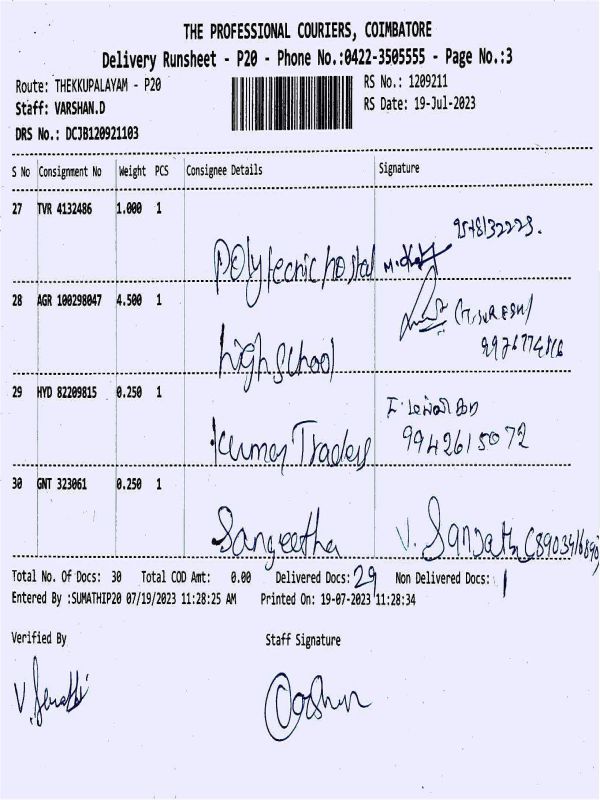 THE PROFESSIONAL COURIERS, COIMBATORE
Delivery Runsheet - P20 - Phone No.:0422-3505555 - Page No.:3
Route: THEKKUPALAYAM - P20
RS No.: 1209211
Staff: VARSHAN.D
RS Date: 19-Jul-2023
DRS No.: DCJB120921103
S No Consignment No Weight PCS Consignee Details Signature
27 TVR 4132486 1.000 1
Polytecnic hostal
28 AGR 100298047 4.500 1
(M.SURESH)
high School
29 HYD 82209815 0.250 1
9942615072
kumar Traders
30 GNT 323061 0.250 1
Sangeetha V.
Total No. Of Docs: 30 Total COD Amt: 0.00 Delivered Docs: 29 Non Delivered Docs: 1
Entered By :SUMATHIP20 07/19/2023 11:28:25 AM Printed On: 19-07-2023 11:28:34
Verified By Staff Signature